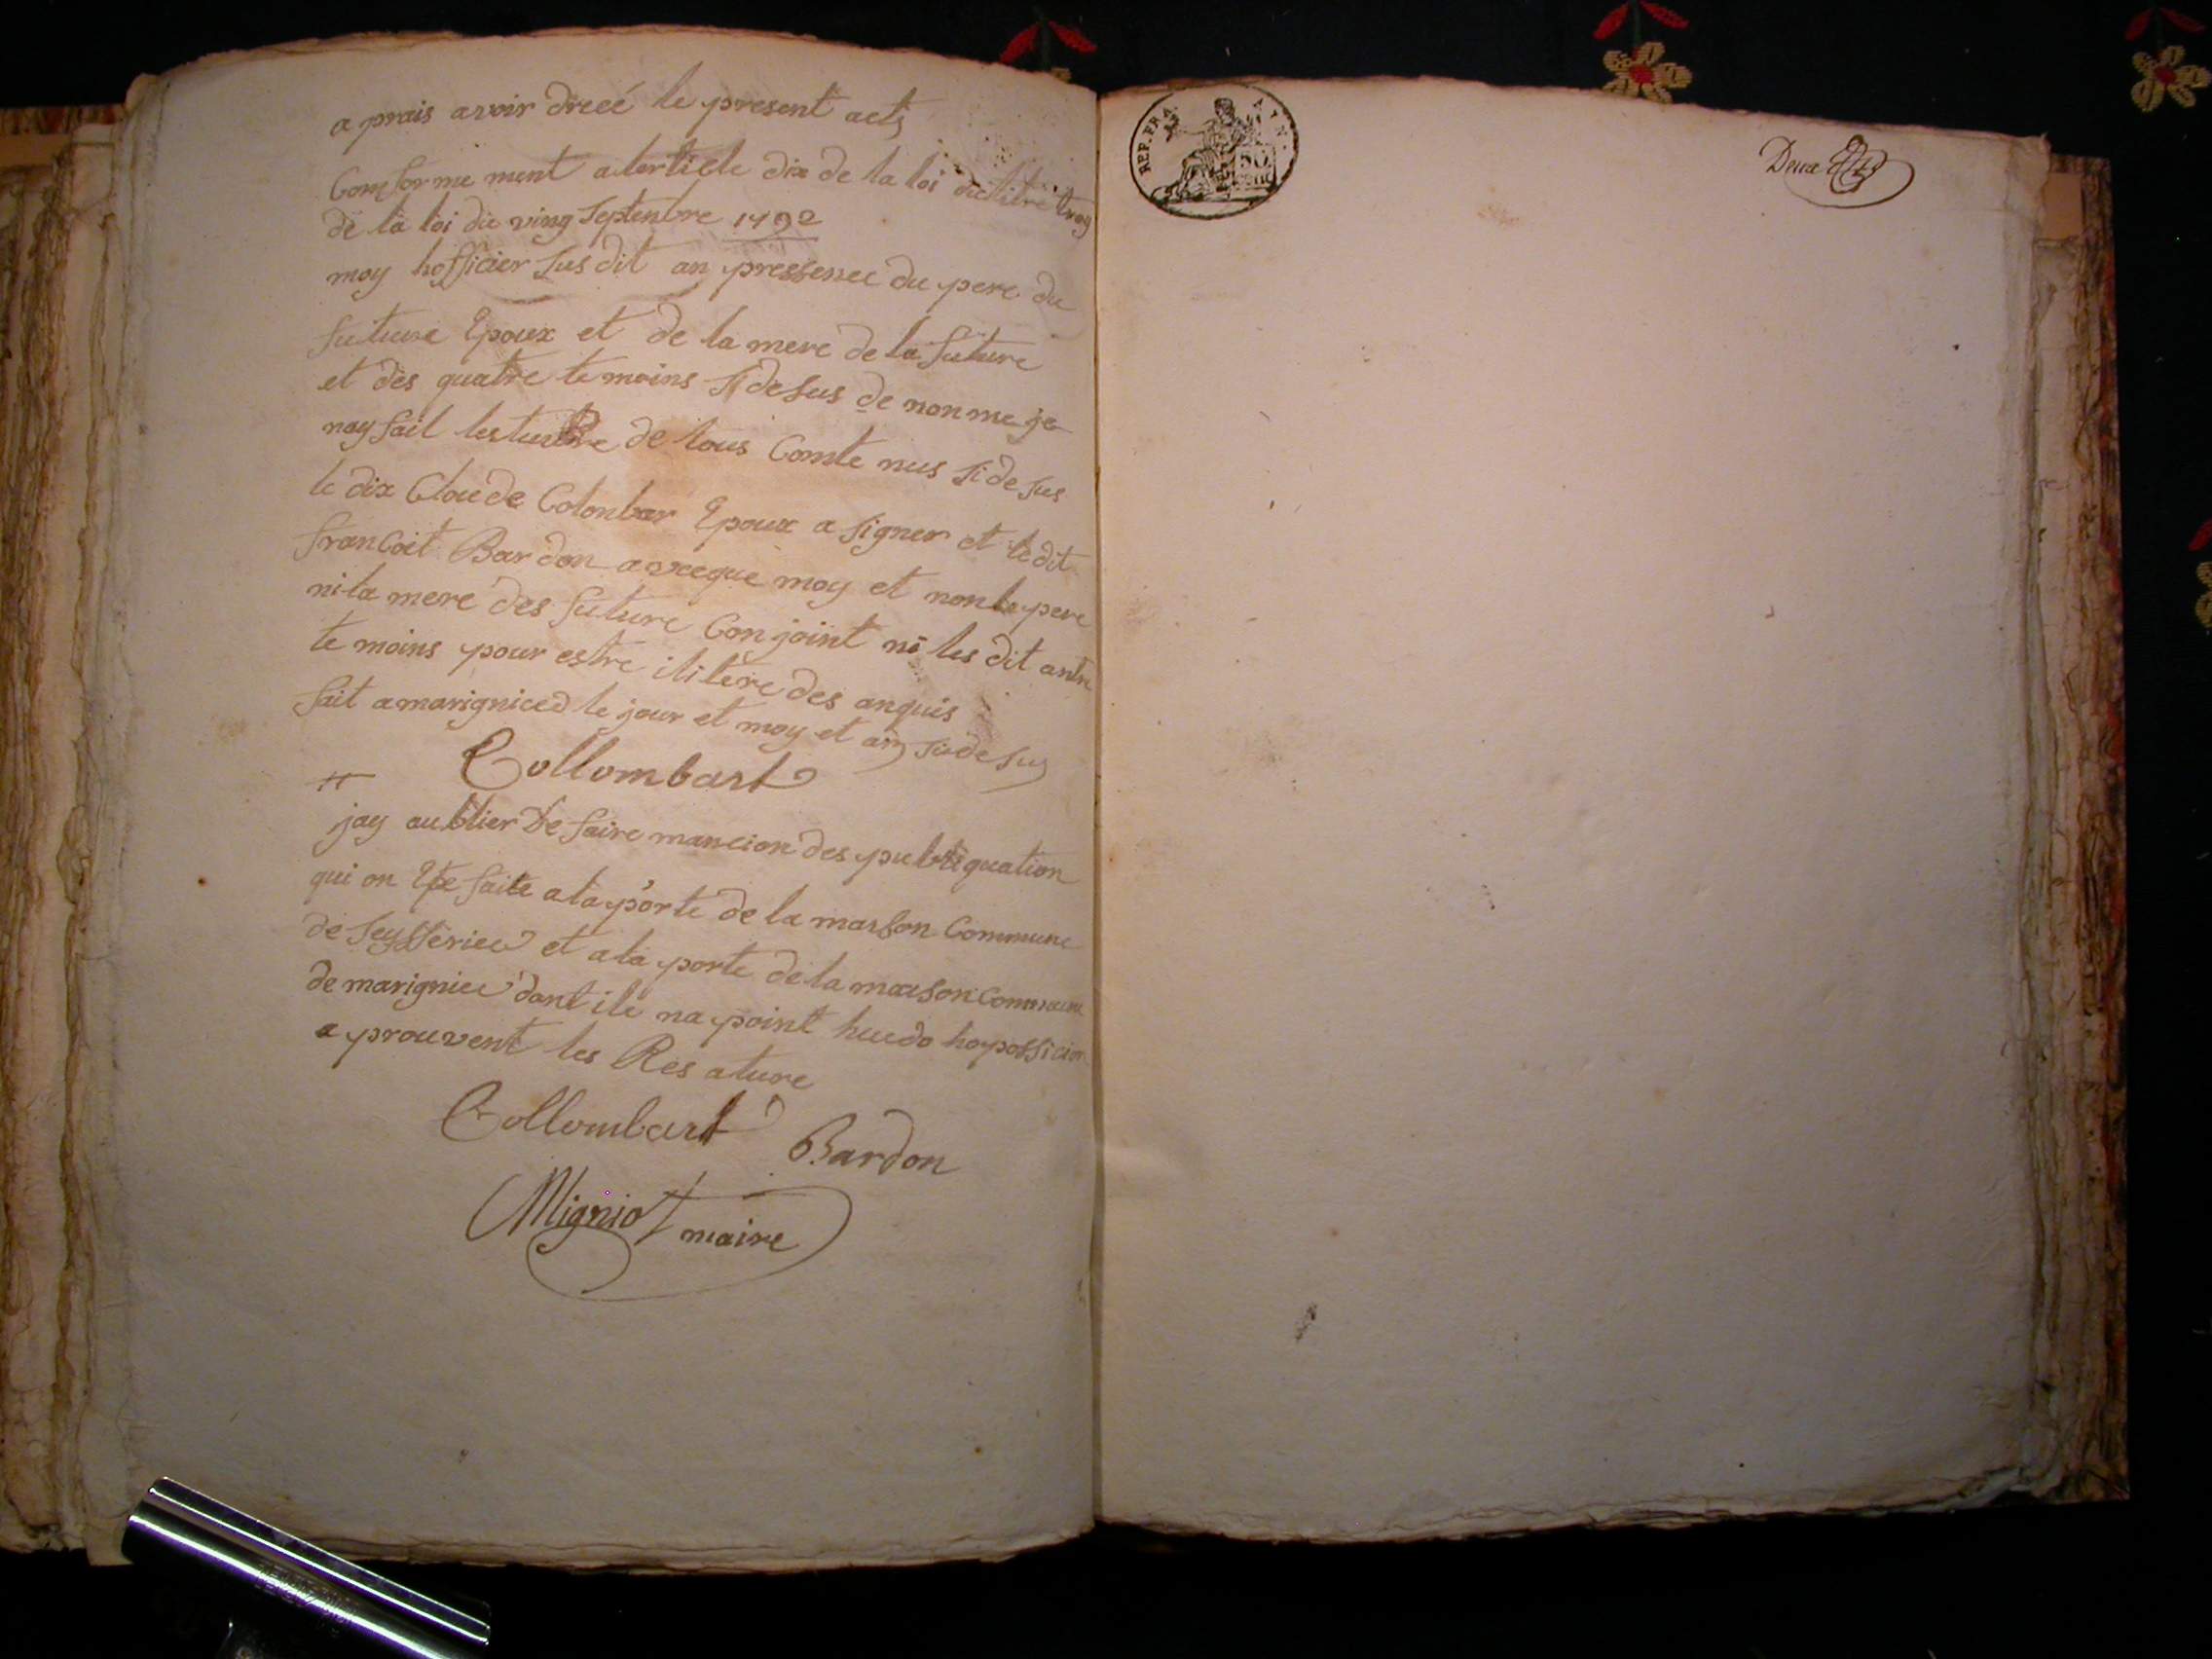 a prais avoir dreeé le present acts
Comforme ment a lartiele dix de la loi du titre troy
de la loi du ving septenbre 1792
moy hofficier sus dit an pressenee du pere du
future Epoux et de la mere de la future
et des quatre te moins si desus de nonme je
nay fait lesture de tous Comte nus si desus
le dix Claude Colonbar Epoux a signer et ledit
francoit Bardon avreque moy et non le pere
ni la mere des future Conjoint ni les dit antre
te moins pour estre ilitere des anquis
fait a marignieed le jour et moy et an sudesus
Collombart
jay aublier De faire mancion des publiquation
qui on Ete faite a la porte de la maison Commune
de Seysseriee et a la porte de la maison Commune
de marigniee dant ile na point hue do hopossicion
a prouvent les Res ature
Collombart Bardon
Migniot maire
REP. FRA. AYN.
50
Deux